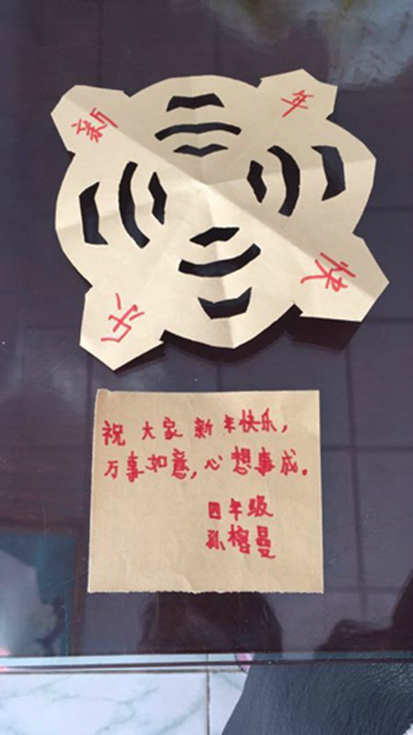 新
年
快
乐
祝 大家 新年快乐，
万事如意，心想事成。
四年级
孙榕曼